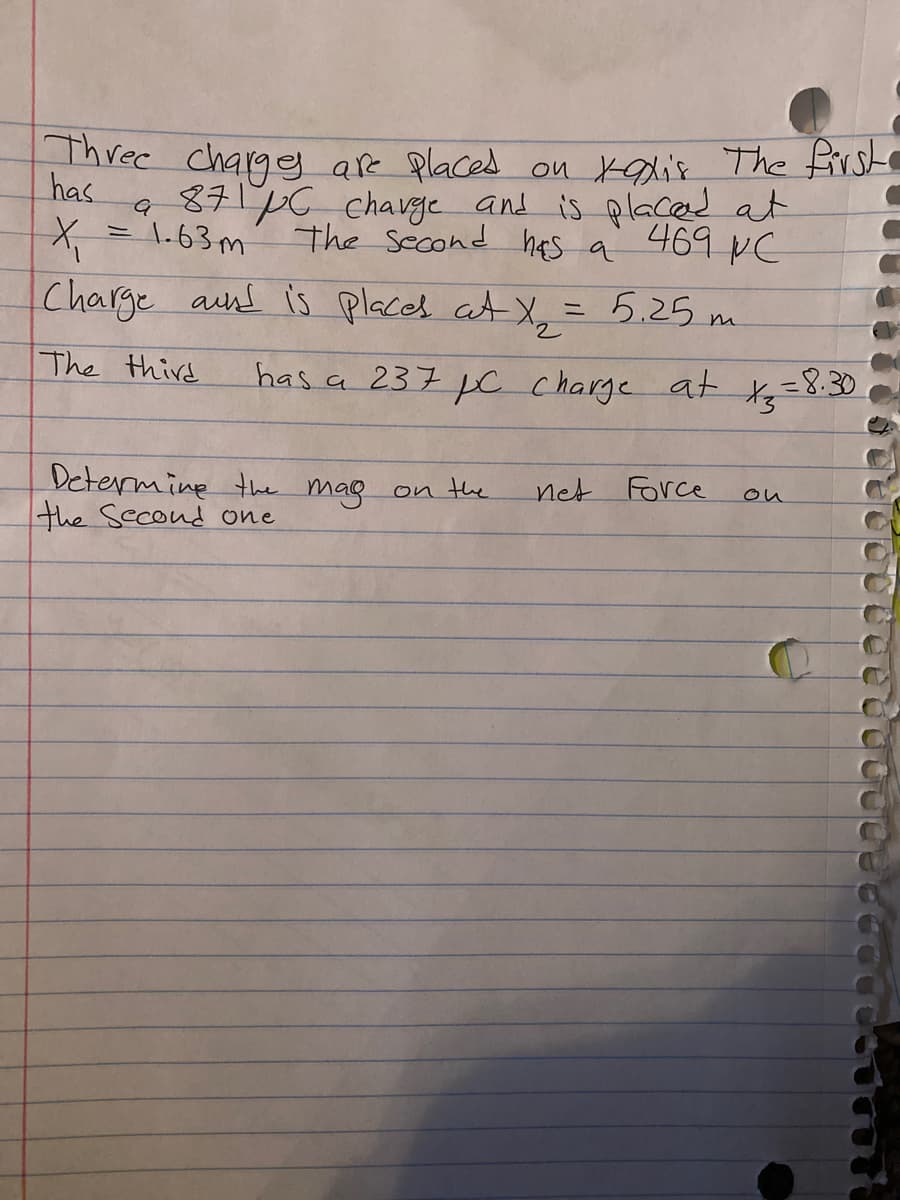 Three charges are placed on x-axis The first
has a 871 μC charge and is placed at
X₁ = 1.63m The second has a 469 μC
Charge and is placed at X₂ = 5.25 m
The third has a 237 μC charge at x₃=8.30
Determine the mag on the net Force on
the Second one